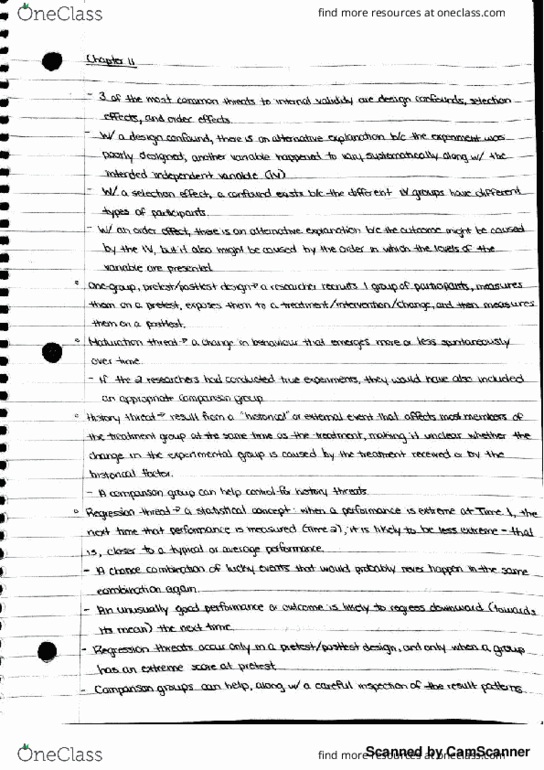 OneClass
find more resources at oneclass.com
Chapter 11
- 3 of the most common threats to internal validity are design confounds, selection
effects, and order effects.
- W/ a design confound, there is an alternative explanation b/c the experiment was
poorly designed, another variable happened to vary systematically along w/ the
intended independent variable (IV)
- W/ a selection effect, a confound exists b/c the different IV groups have different
types of participants.
- W/ an order effect, there is an alternative explanation b/c the outcome might be caused
by the IV, but it also might be caused by the order in which the levels of the
variable are presented
° One-group, pretest/posttest design → a researcher recruits 1 group of participants, measures
them on a pretest, exposes them to a treatment/intervention/change, and then measures
them on a posttest.
° Maturation threat → a change in behaviour that emerges more or less spontaneously
over time.
- If the 2 researchers had conducted true experiments, they would have also included
an appropriate comparison group
° History threat → result from a "historical" or external event that affects most members of
the treatment group at the same time as the treatment, making it unclear whether the
change in the experimental group is caused by the treatment received or by the
historical factor.
- A comparison group can help control for history threats
° Regression threat → a statistical concept: when a performance is extreme at Time 1, the
next time that performance is measured (Time 2), it is likely to be less extreme - that
is, closer to a typical or average performance.
- A chance combination of lucky events that would probably never happen in the same
combination again.
- An unusually good performance or outcome is likely to regress downward (towards
its mean) the next time.
- Regression threats occur only in a pretest/posttest design, and only when a group
has an extreme score at pretest
- Comparison groups can help, along w/ a careful inspection of the result patterns.
OneClass
find more resources at oneclass.com
Scanned by CamScanner